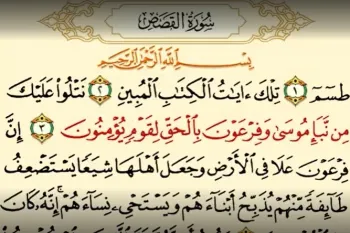 سُورَةُ القَصَصِ
بِسْمِ اللَّهِ الرَّحْمَٰنِ الرَّحِيمِ
طسٓمٓ ١ تِلْكَ ءَايَٰتُ ٱلْكِتَٰبِ ٱلْمُبِينِ ٢ نَتْلُوا۟ عَلَيْكَ
مِن نَّبَإِ مُوسَىٰ وَفِرْعَوْنَ بِٱلْحَقِّ لِقَوْمٍ يُؤْمِنُونَ ٣ إِنَّ
فِرْعَوْنَ عَلَا فِى ٱلْأَرْضِ وَجَعَلَ أَهْلَهَا شِيَعًا يَسْتَضْعِفُ
طَآئِفَةً مِّنْهُمْ يُذَبِّحُ أَبْنَآءَهُمْ وَيَسْتَحْىِۦ نِسَآءَهُمْ إِنَّهُۥ كَانَ